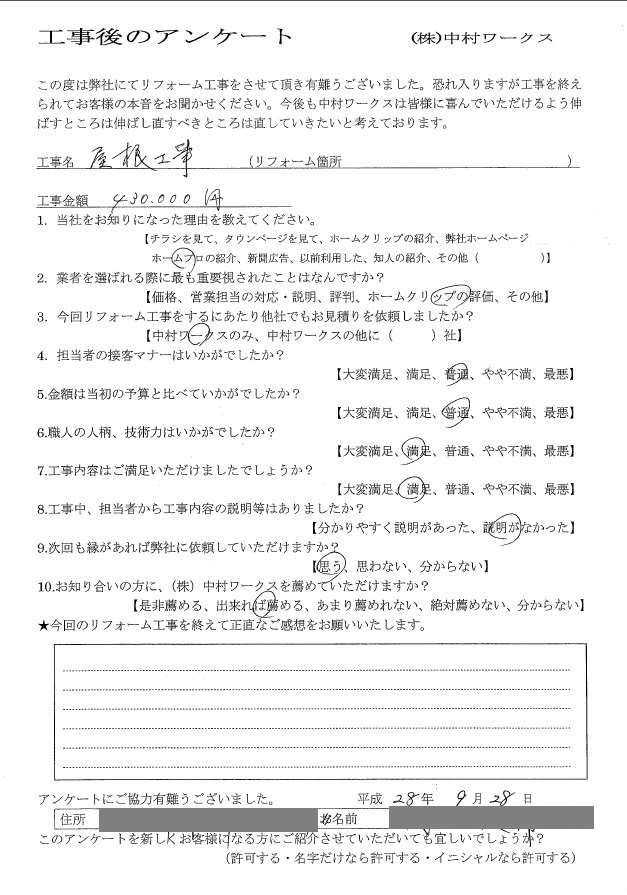 工事後のアンケート (株)中村ワークス
この度は弊社にてリフォーム工事をさせて頂き有難うございました。恐れ入りますが工事を終え
られてお客様の本音をお聞かせください。今後も中村ワークスは皆様に喜んでいただけるよう伸
ばすところは伸ばし直すべきところは直していきたいと考えております。
工事名 屋根工事 (リフォーム箇所 )
工事金額 430.000 円
1. 当社をお知りになった理由を教えてください。
【チラシを見て、タウンページを見て、ホームクリップの紹介、弊社ホームページ
ホームプロの紹介、新聞広告、以前利用した、知人の紹介、その他( )】
2. 業者を選ばれる際に最も重要視されたことはなんですか?
【価格、営業担当の対応・説明、評判、ホームクリップの評価、その他】
3. 今回リフォーム工事をするにあたり他社でもお見積りを依頼しましたか?
【中村ワークスのみ、中村ワークスの他に( )社】
4. 担当者の接客マナーはいかがでしたか?
【大変満足、満足、普通、やや不満、最悪】
5.金額は当初の予算と比べていかがでしたか?
【大変満足、満足、普通、やや不満、最悪】
6.職人の人柄、技術力はいかがでしたか?
【大変満足、満足、普通、やや不満、最悪】
7.工事内容はご満足いただけましたでしょうか?
【大変満足、満足、普通、やや不満、最悪】
8.工事中、担当者から工事内容の説明等はありましたか?
【分かりやすく説明があった、説明がなかった】
9.次回も縁があれば弊社に依頼していただけますか?
【思う、思わない、分からない】
10.お知り合いの方に、(株)中村ワークスを薦めていただけますか?
【是非薦める、出来れば薦める、あまり薦めれない、絶対薦めない、分からない】
★今回のリフォーム工事を終えて正直なご感想をお願いいたします。
アンケートにご協力有難うございました。 平成 28 年 9 月 28 日
住所 お名前
このアンケートを新しくお客様になる方にご紹介させていただいても宜しいでしょうか?
(許可する・名字だけなら許可する・イニシャルなら許可する)